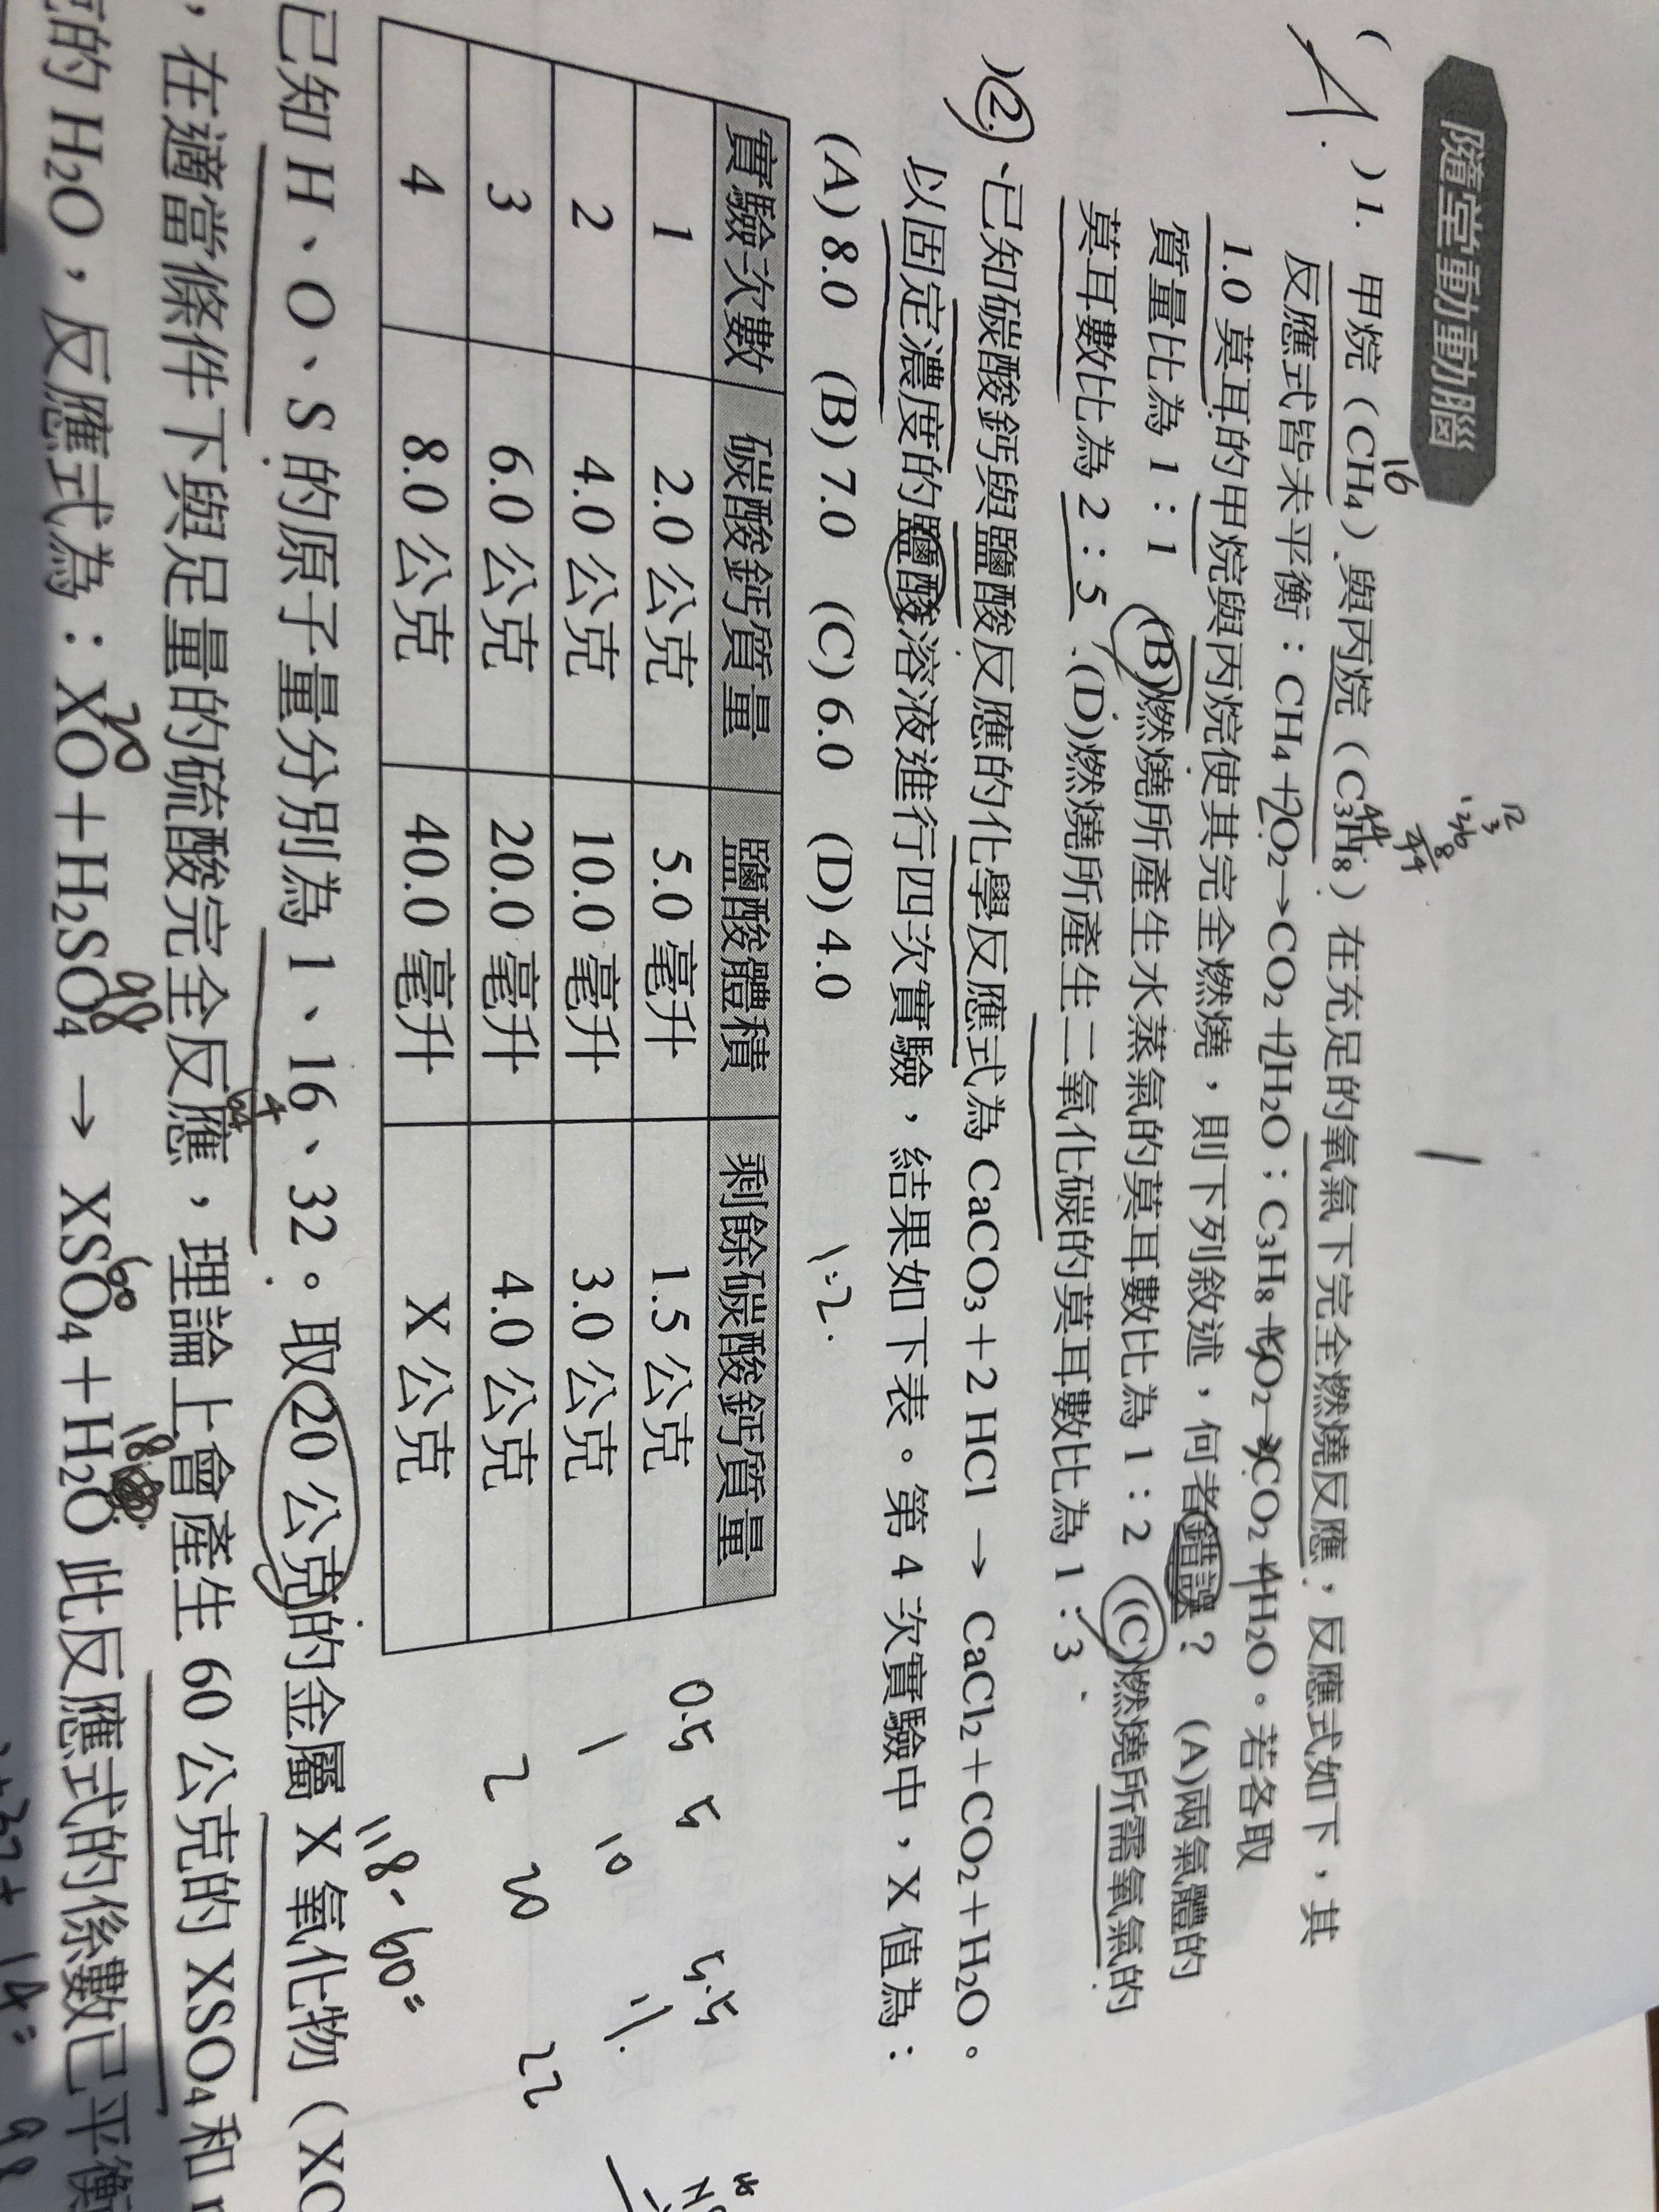 隨堂動動腦
( A ) 1. 甲烷（CH₄）與丙烷（C₃H₈）在充足的氧氣下完全燃燒反應，反應式如下，其
16
44
反應式皆未平衡：CH₄+2O₂→CO₂+2H₂O；C₃H₈+5O₂→3CO₂+4H₂O。若各取
1.0 莫耳的甲烷與丙烷使其完全燃燒，則下列敘述，何者錯誤？ (A)兩氣體的
質量比為 1：1 (B)燃燒所產生水蒸氣的莫耳數比為 1：2 (C)燃燒所需氧氣的
莫耳數比為 2：5 (D)燃燒所產生二氧化碳的莫耳數比為 1：3
)2. 已知碳酸鈣與鹽酸反應的化學反應式為 CaCO₃+2 HCl → CaCl₂+CO₂+H₂O。
以固定濃度的鹽酸溶液進行四次實驗，結果如下表。第 4 次實驗中，X 值為：
(A) 8.0 (B) 7.0 (C) 6.0 (D) 4.0
1:2.
實驗次數 碳酸鈣質量 鹽酸體積 剩餘碳酸鈣質量
1 2.0 公克 5.0 毫升 1.5 公克 0.5 5 5.5
2 4.0 公克 10.0 毫升 3.0 公克 1 10 11.
3 6.0 公克 20.0 毫升 4.0 公克 2 20 22
4 8.0 公克 40.0 毫升 X 公克
118-60=
已知 H、O、S 的原子量分別為 1、16、32。取 20 公克的金屬 X 氧化物（XO
，在適當條件下與足量的硫酸完全反應，理論上會產生 60 公克的 XSO₄和
的 H₂O，反應式為：XO+H₂SO₄ → XSO₄+H₂O 此反應式的係數已平衡
20 98 60 18